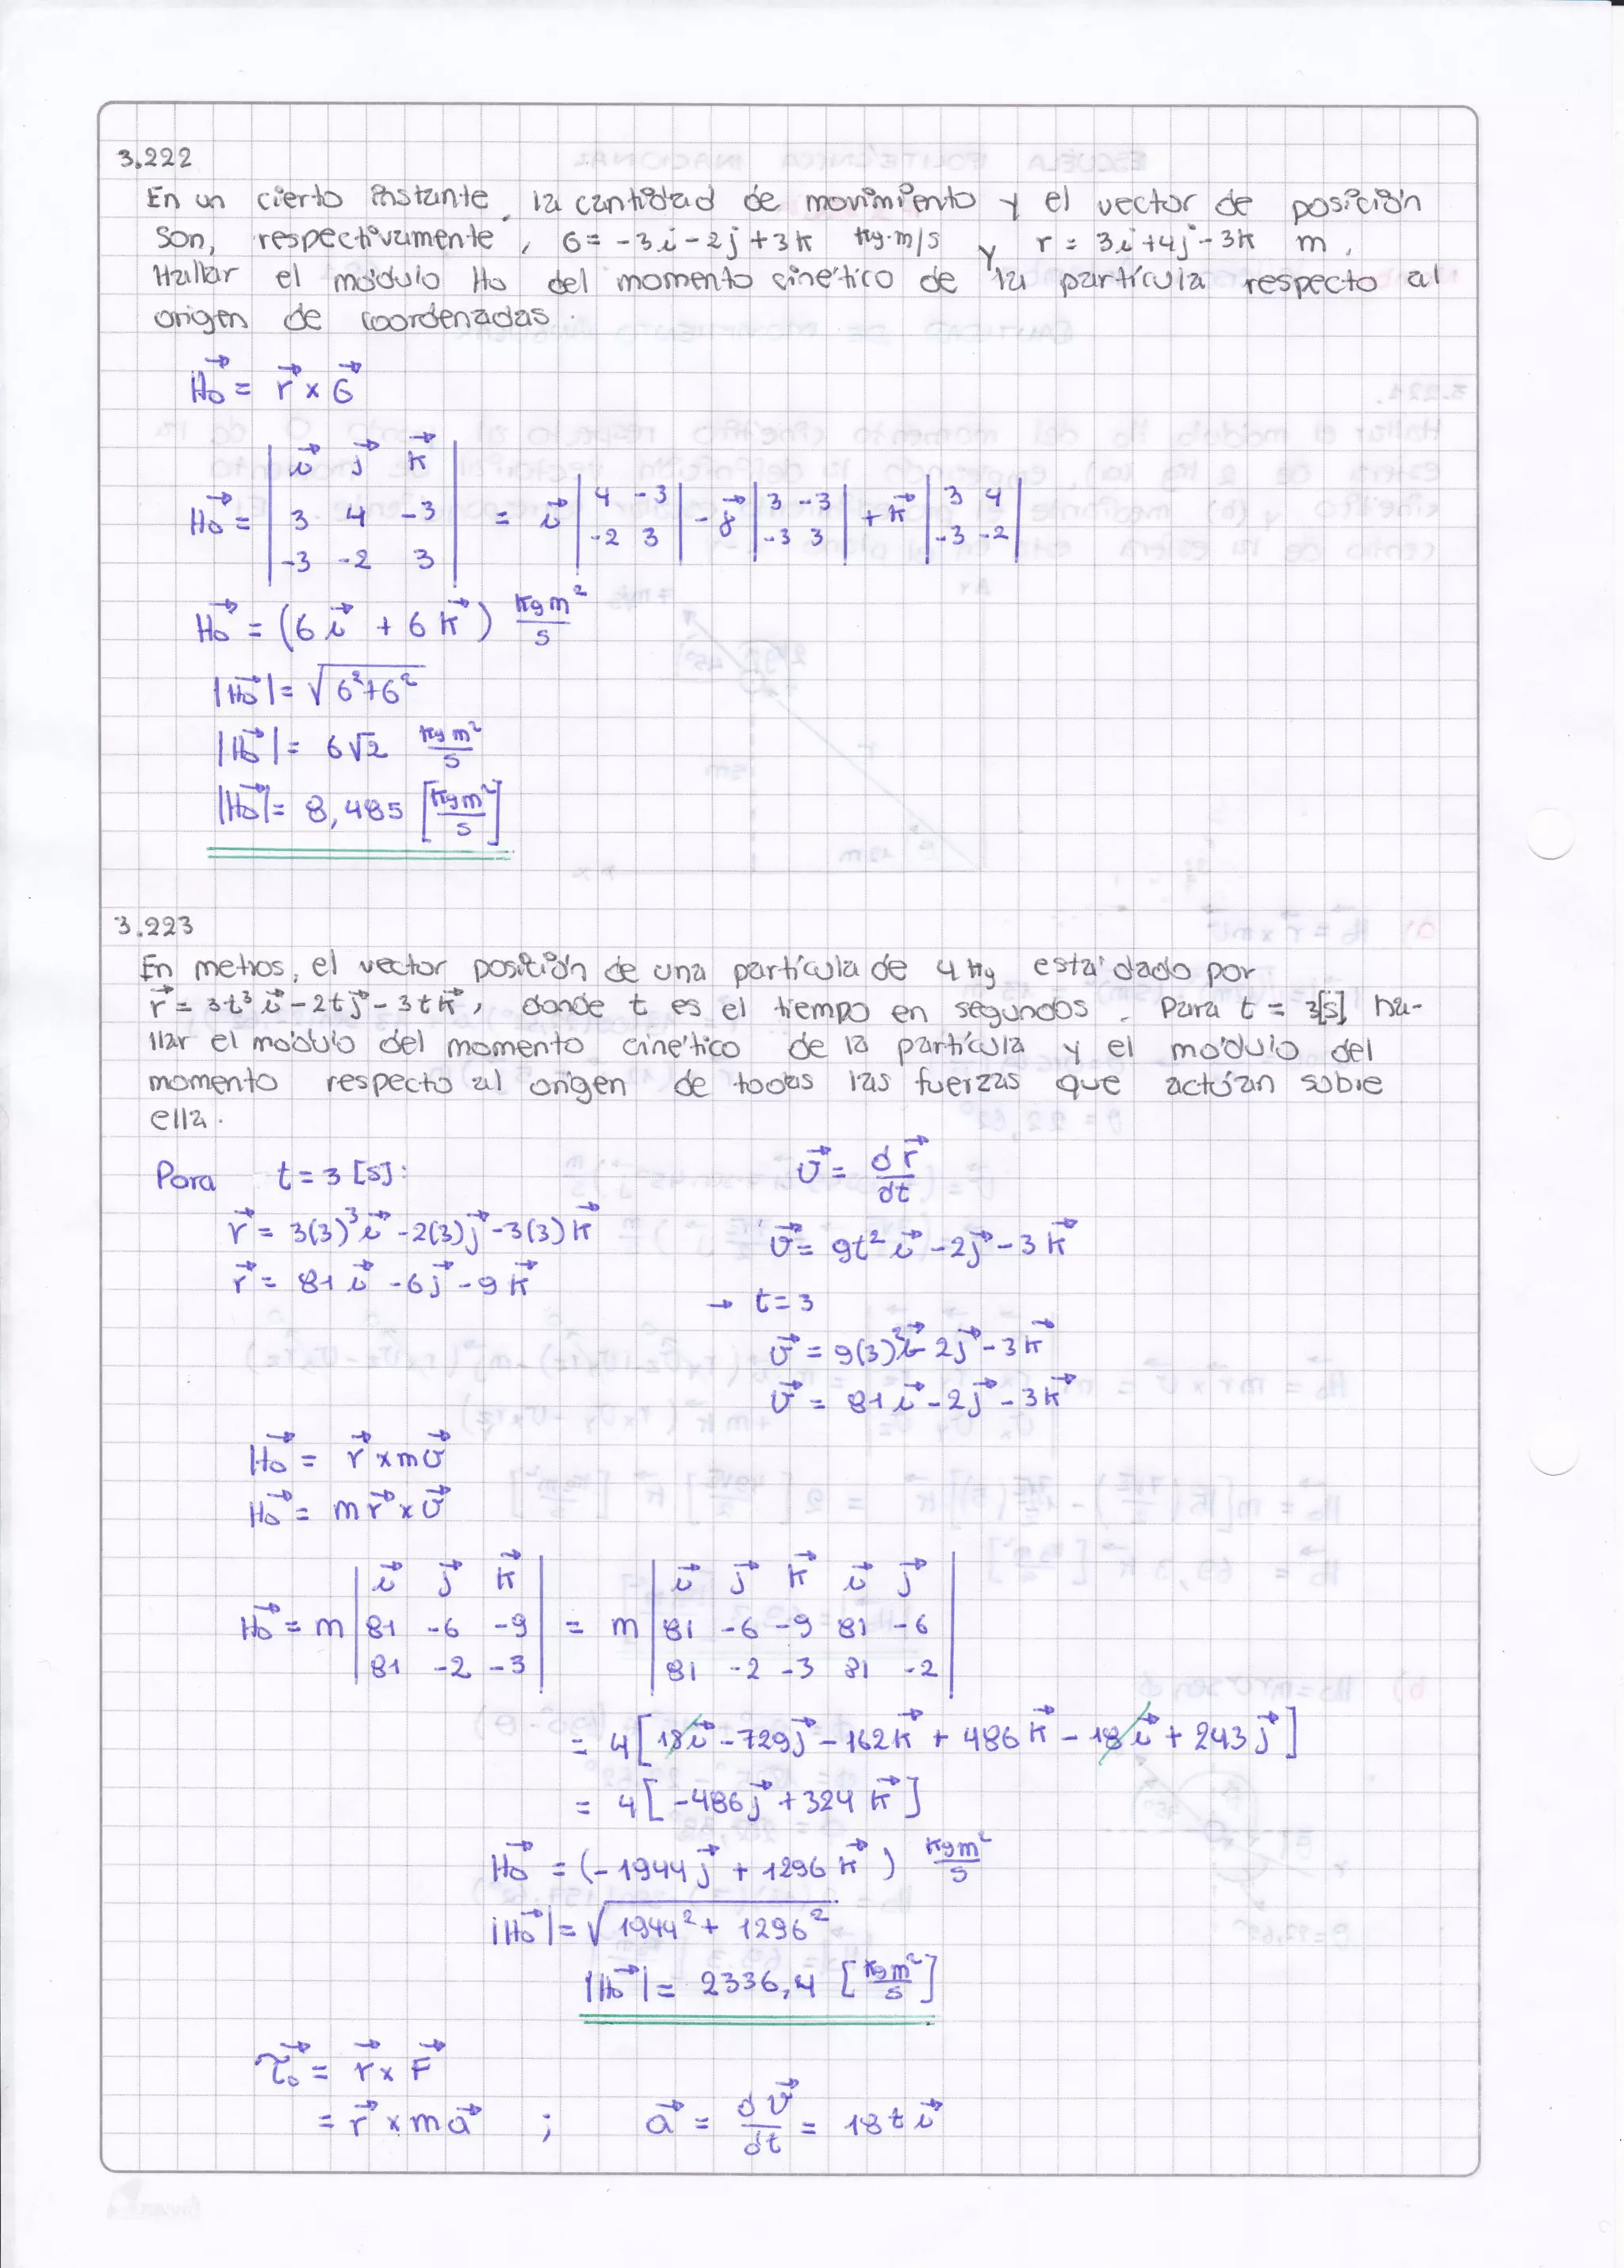 3.222
En un cierto instante, la cantidad de movimiento y el vector de posición
son, respectivamente, G = -3i - 2j + 3k kg·m/s y r = 3i + 4j - 3k m.
Hallar el módulo Ho del momento cinético de la partícula respecto al
origen de coordenadas.
H⃗o = r⃗ × G⃗
H⃗o = | i⃗ j⃗ k⃗ ; 3 4 -3 ; -3 -2 3 | = i⃗ | 4 -3 ; -2 3 | - j⃗ | 3 -3 ; -3 3 | + k⃗ | 3 4 ; -3 -2 |
H⃗o = (6 i⃗ + 6 k⃗) kg m²/s
|H⃗o| = √(6² + 6²)
|H⃗o| = 6√2 kg m²/s
|H⃗o| = 8,485 [kg m²/s]
3.223
En metros, el vector posición de una partícula de 4 kg está dado por
r⃗ = 3t³ i⃗ - 2t j⃗ - 3t k⃗, donde t es el tiempo en segundos. Para t = 3[s], ha-
llar el módulo del momento cinético de la partícula y el módulo del
momento respecto al origen de todas las fuerzas que actúan sobre
ella.
Para t = 3 [s]:
r⃗ = 3(3)³ i⃗ - 2(3) j⃗ - 3(3) k⃗
r⃗ = 81 i⃗ - 6 j⃗ - 9 k⃗
v⃗ = d r⃗/dt
v⃗ = 9t² i⃗ - 2 j⃗ - 3 k⃗
→ t = 3
v⃗ = 9(3)² i⃗ - 2 j⃗ - 3 k⃗
v⃗ = 81 i⃗ - 2 j⃗ - 3 k⃗
H⃗o = r⃗ × m v⃗
H⃗o = m r⃗ × v⃗
H⃗o = m | i⃗ j⃗ k⃗ ; 81 -6 -9 ; 81 -2 -3 | = m | i⃗ j⃗ k⃗ i⃗ j⃗ ; 81 -6 -9 81 -6 ; 81 -2 -3 81 -2 |
= 4 [18 i⃗ - 729 j⃗ - 162 k⃗ + 486 k⃗ - 18 i⃗ + 243 j⃗]
= 4 [-486 j⃗ + 324 k⃗]
H⃗o = (-1944 j⃗ + 1296 k⃗) kg m²/s
|H⃗o| = √(1944² + 1296²)
|H⃗o| = 2336,4 [kg m²/s]
τ⃗o = r⃗ × F⃗
= r⃗ × m a⃗ ; a⃗ = d v⃗/dt = 18 t i⃗